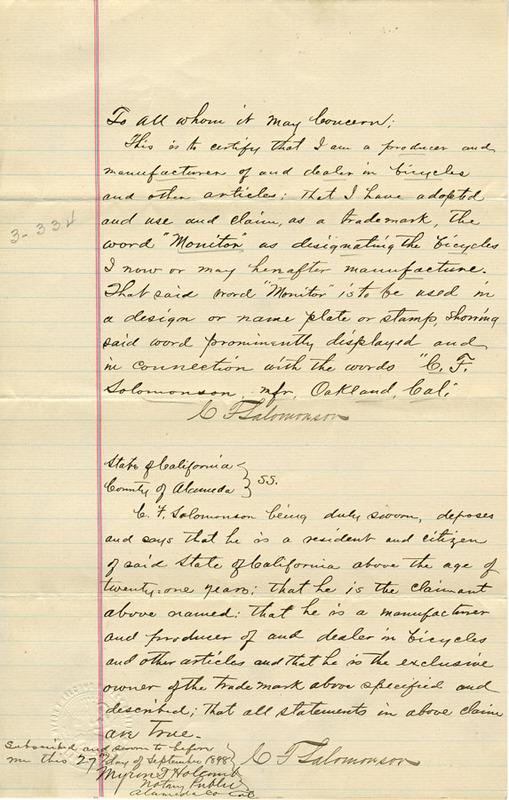 To all whom it may Concern;
This is to certify that I am a producer and
manufacturer of and dealer in bicycles
and other articles; that I have adopted
and use and claim, as a trademark, the
word "Monitor" as designating the bicycles
I now or may herafter manufacture.
That said word "Monitor" is to be used in
a design or name plate or stamp, showing
said word prominently displayed and
in connection with the words "C. F.
Solomonson, mfr, Oakland, Cal."
C F Salomonson
3-334
State of California
County of Alameda } SS.
C. F. Solomonson being duly sworn, deposes
and says that he is a resident and citizen
of said State of California above the age of
twenty-one years; that he is the claimant
above named; that he is a manufacturer
and producer of and dealer in bicycles
and other articles and that he is the exclusive
owner of the trade mark above specified and
described; that all statements in above claim
are true.
C F Salomonson
Subscribed and sworn to before
me this 27th day of September 1898
Myron T Holcomb
Notary Public
Alameda Co Cal